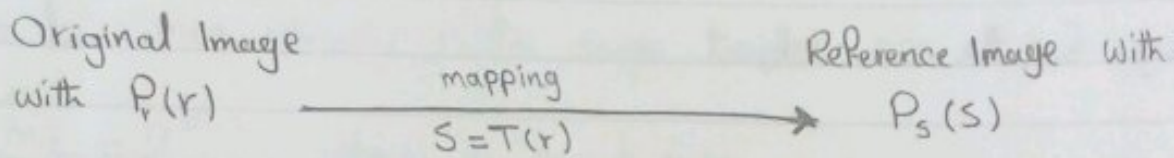 Original Image
with Pr(r)
mapping
S = T(r)
Reference Image with
Ps(s)